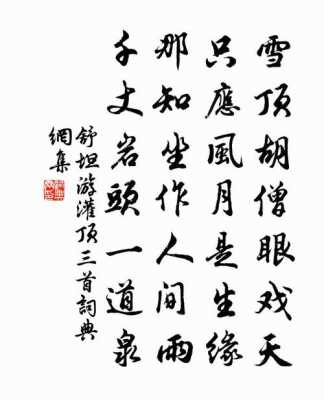 雪頂胡僧眼戏天
只應風月是生緣
那知坐作人間雨
千丈岩頭一道泉
舒坦游灌頂三首詞典
網集